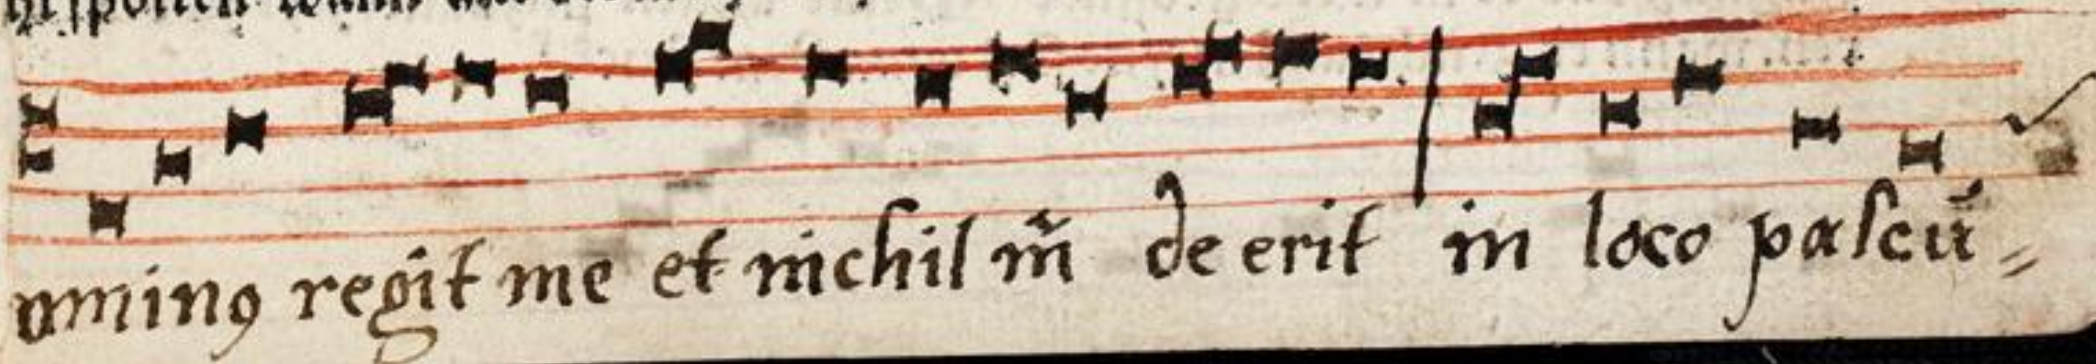 omin9 regit me et nichil m̃ de erit in loco pascũ =